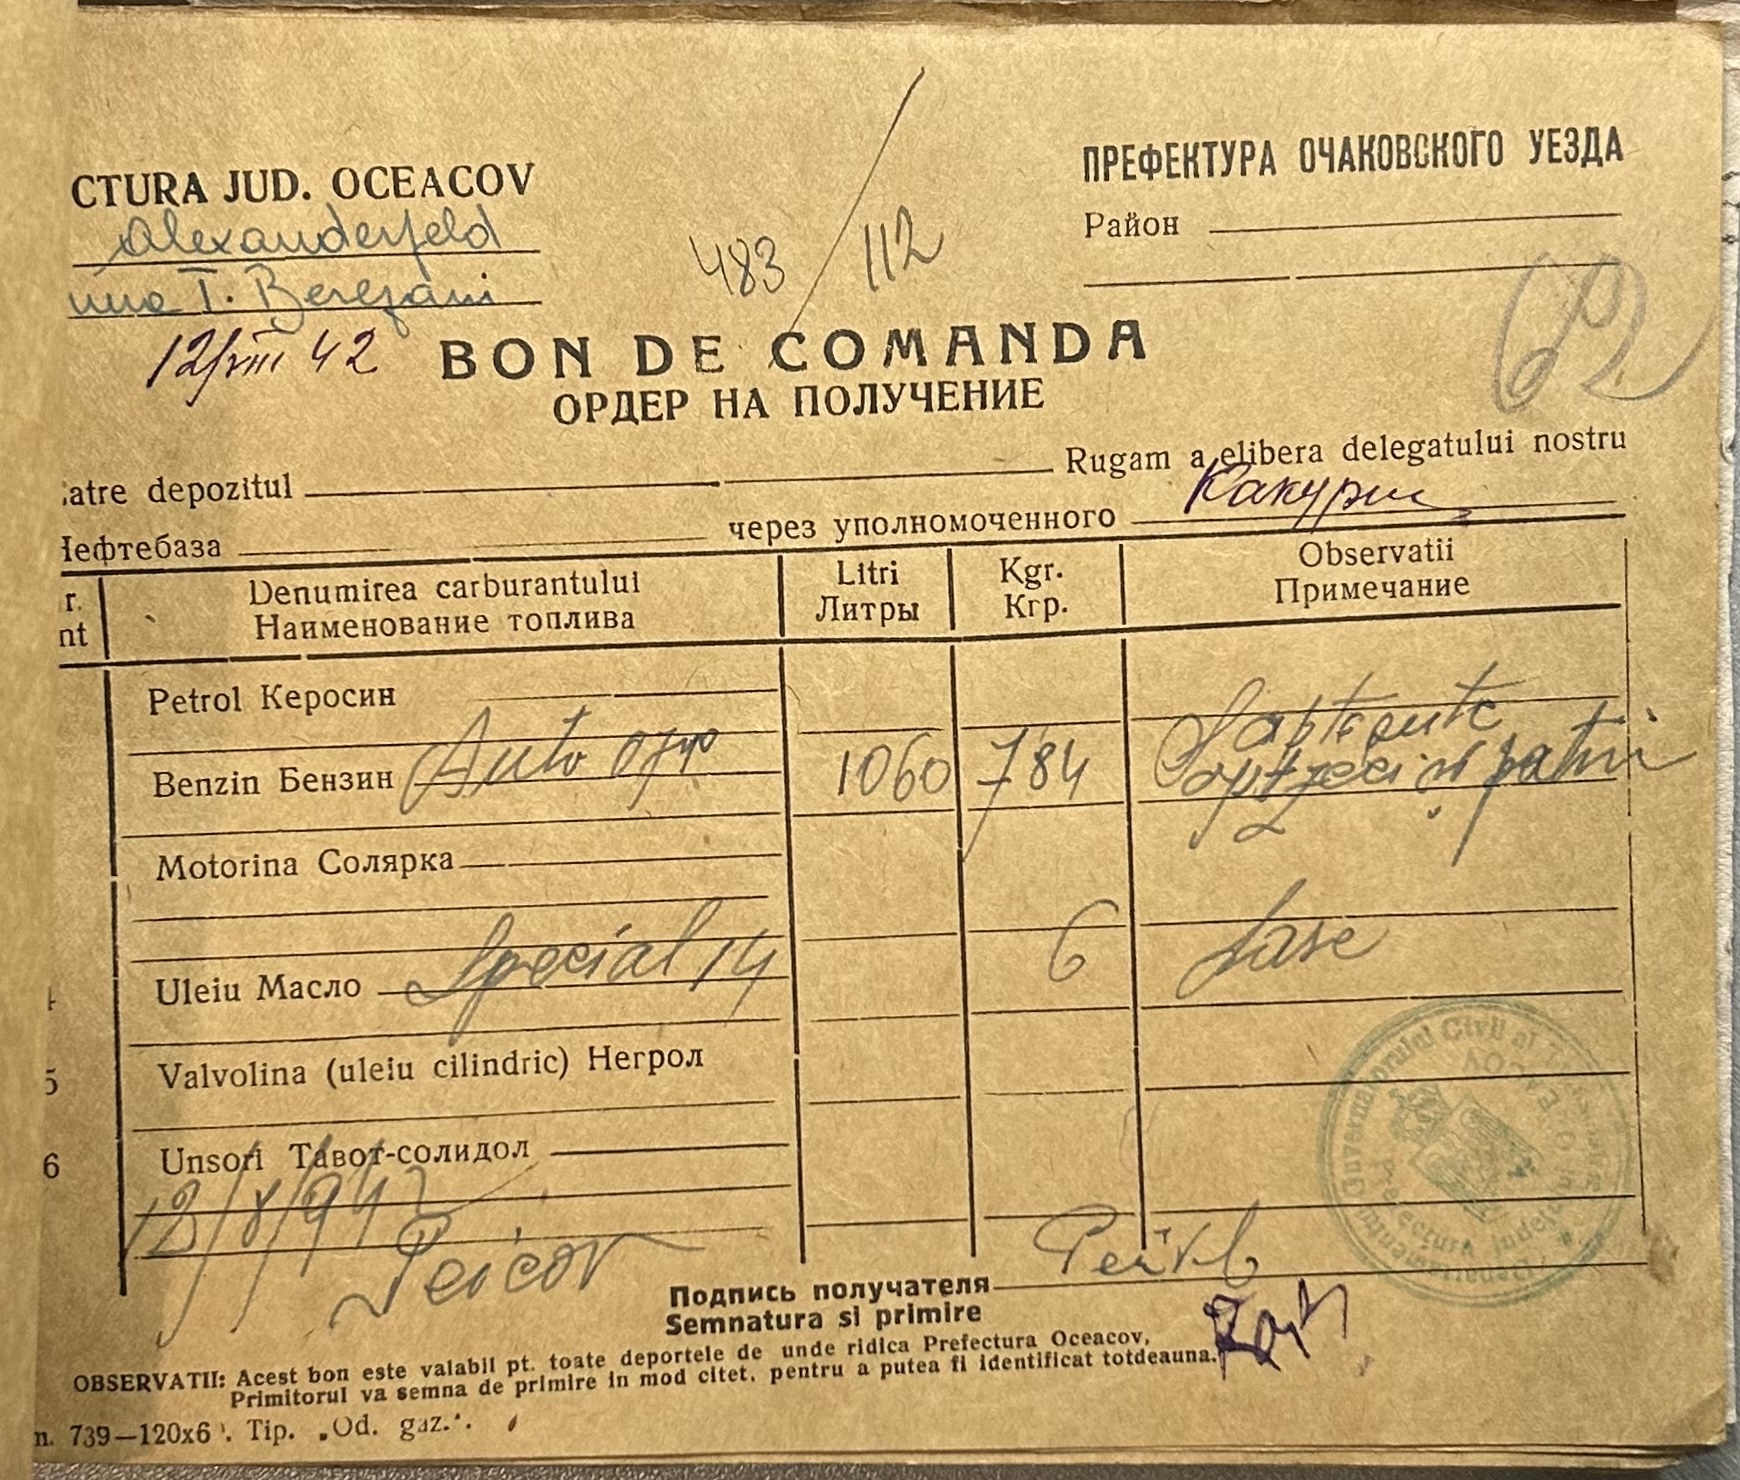 CTURA JUD. OCEACOV
ПРЕФЕКТУРА ОЧАКОВСКОГО УЕЗДА
Alexanderfeld
Район
483/112
T. Berezani
62
12/VIII 42
BON DE COMANDA
ОРДЕР НА ПОЛУЧЕНИЕ
atre depozitul Rugam a elibera delegatului nostru
Нефтебаза через уполномоченного Какурин
r. Denumirea carburantului Litri Kgr. Observatii
nt Наименование топлива Литры Кгр. Примечание
Petrol Керосин
Benzin Бензин Auto 1060 784 Sapte sute
optzeci si patru
Motorina Солярка
Uleiu Масло Special 14 6 Sase
5 Valvolina (uleiu cilindric) Негрол
6 Unsori Тавот-солидол
12/8/942
Подпись получателя
Semnatura si primire
OBSERVATII: Acest bon este valabil pt. toate deportele de unde ridica Prefectura Oceacov,
Primitorul va semna de primire in mod citet, pentru a putea fi identificat totdeauna.
739—120x6 . Tip. „Od. gaz.".
Guvernamantul Civil al
Prefectura Judetului